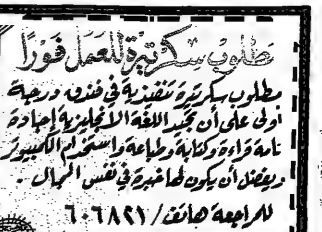 مطلوب سكرتيرة للعمل فورًا
مطلوب سكرتيرة تنفيذية في فندق درجة
أولى على أن تجيد اللغة الانجليزية إجادة
تامة قراءة وكتابة وطباعة واستخدام الكمبيوتر
ويفضل أن يكون لها خبرة في نفس المجال .
للمراجعة هاتف / ٦٠٦٨٢١